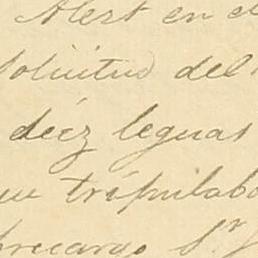 Alert en el
solicitud del
diez leguas
que tripulaba
brecargo Sr